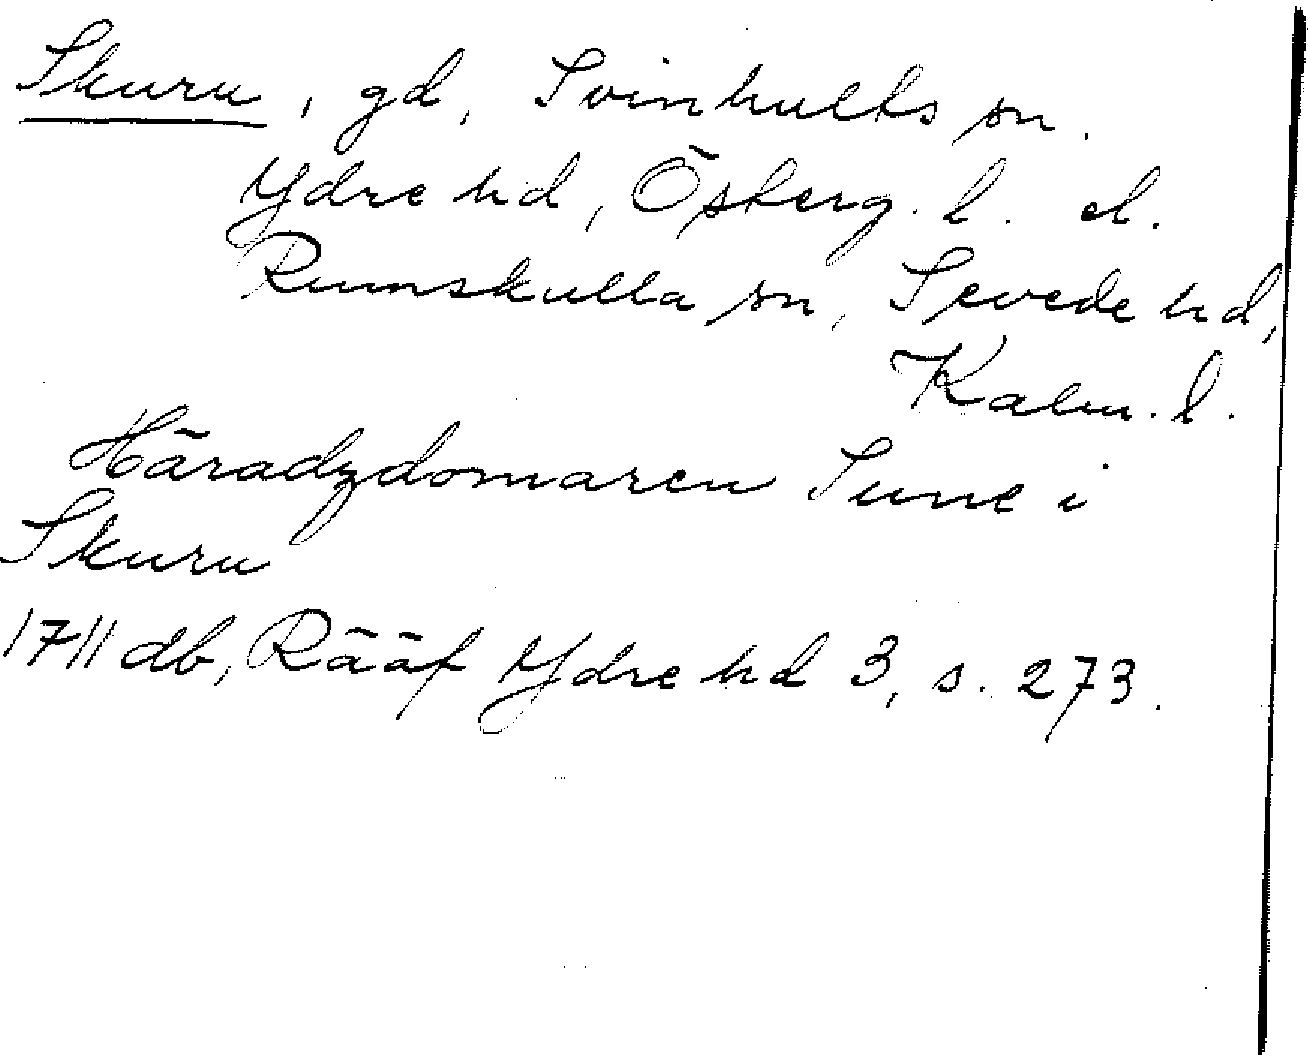 Skuru, gd, Svinhults sn.
Ydre hd, Österg. l. el.
Rumskulla sn, Sevede hd,
Kalm. l.
Häradzdomaren Sune i
Skuru
1711 db, Rääf Ydre hd 3, s. 273.